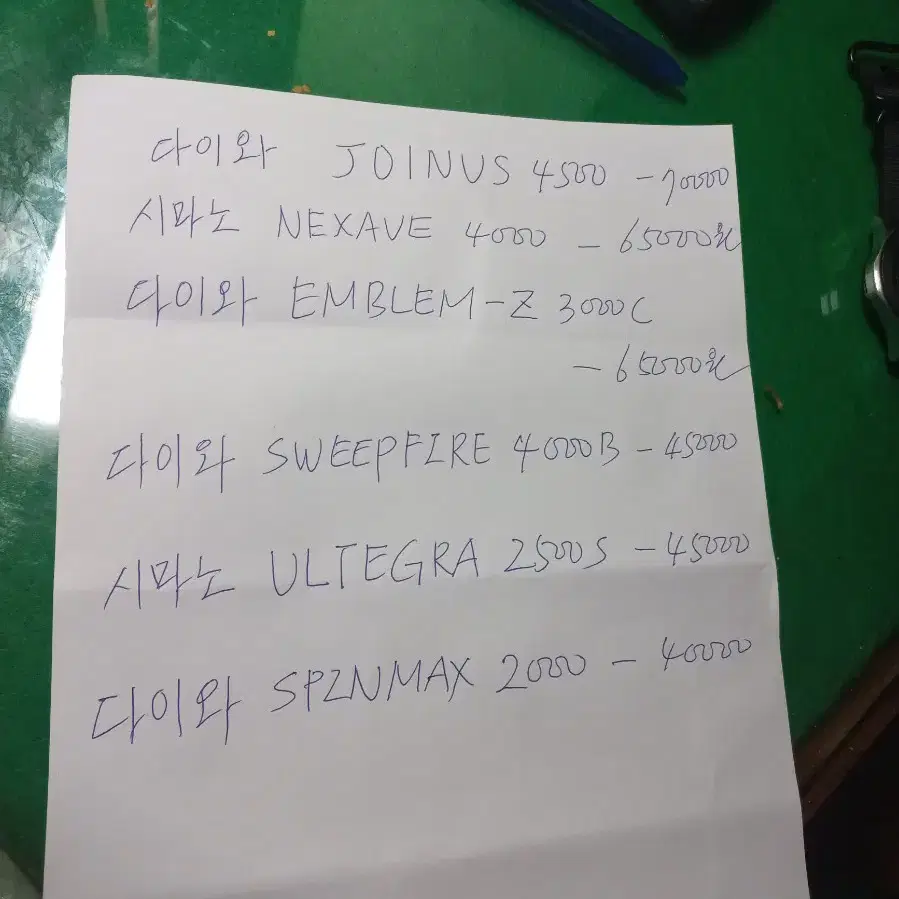 다이와 JOINUS 4500 - 70000
시마노 NEXAVE 4000 - 65000원
다이와 EMBLEM-Z 3000C
- 65000원
다이와 SWEEPFIRE 4000B - 45000
시마노 ULTEGRA 2500S - 45000
다이와 SPINMAX 2000 - 40000